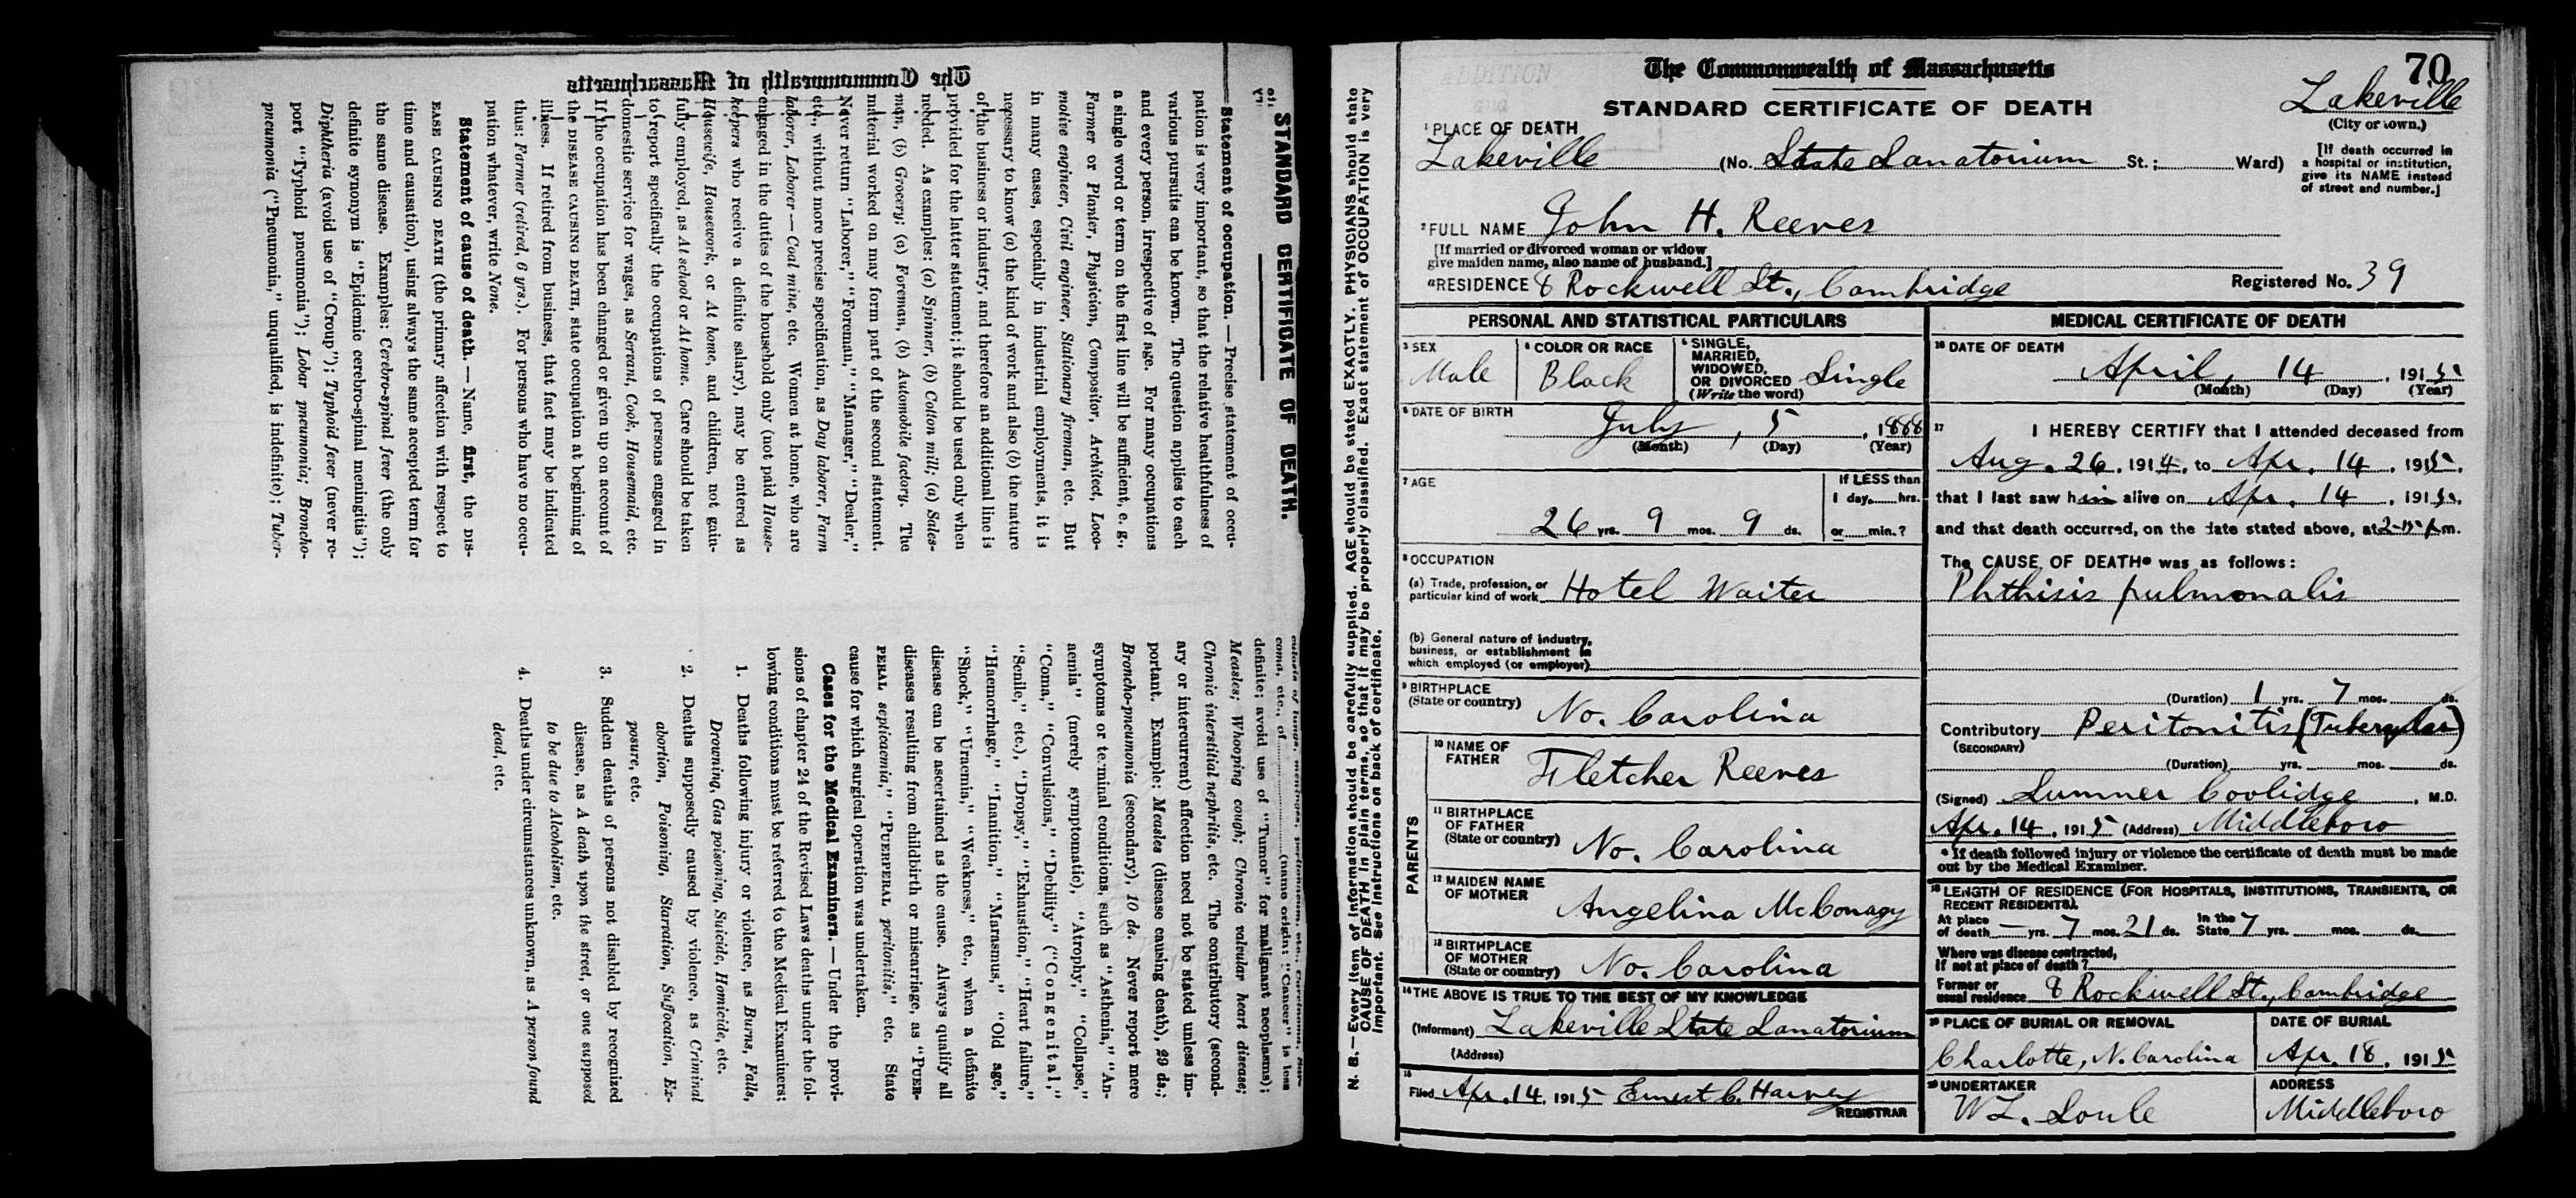 The Commonwealth of Massachusetts
STANDARD CERTIFICATE OF DEATH.
Statement of occupation. — Precise statement of occu-
pation is very important, so that the relative healthfulness of
various pursuits can be known. The question applies to each
and every person, irrespective of age. For many occupations
a single word or term on the first line will be sufficient, e. g.,
Farmer or Planter, Physician, Compositor, Architect, Loco-
motive engineer, Civil engineer, Stationary fireman, etc. But
in many cases, especially in industrial employments, it is
necessary to know (a) the kind of work and also (b) the nature
of the business or industry, and therefore an additional line is
provided for the latter statement; it should be used only when
needed. As examples: (a) Spinner, (b) Cotton mill; (a) Sales-
man, (b) Grocery; (a) Foreman, (b) Automobile factory. The
material worked on may form part of the second statement.
Never return "Laborer," "Foreman," "Manager," "Dealer,"
etc., without more precise specification, as Day laborer, Farm
laborer, Laborer — Coal mine, etc. Women at home, who are
engaged in the duties of the household only (not paid House-
keepers who receive a definite salary), may be entered as
Housewife, Housework, or At home, and children, not gain-
fully employed, as At school or At home. Care should be taken
to report specifically the occupations of persons engaged in
domestic service for wages, as Servant, Cook, Housemaid, etc.
If the occupation has been changed or given up on account of
the DISEASE CAUSING DEATH, state occupation at beginning of
illness. If retired from business, that fact may be indicated
thus: Farmer (retired, 6 yrs.). For persons who have no occu-
pation whatever, write None.
Statement of cause of death. — Name, first, the DIS-
EASE CAUSING DEATH (the primary affection with respect to
time and causation), using always the same accepted term for
the same disease. Examples: Cerebro-spinal fever (the only
definite synonym is "Epidemic cerebro-spinal meningitis");
Diphtheria (avoid use of "Croup"); Typhoid fever (never re-
port "Typhoid pneumonia"); Lobar pneumonia; Broncho-
pneumonia ("Pneumonia," unqualified, is indefinite); Tuber-
culosis of lungs, meninges, peritoneum, etc., Carcinoma, Sar-
coma, etc., of (name origin: "Cancer" is less
definite; avoid use of "Tumor" for malignant neoplasms);
Measles; Whooping cough; Chronic valvular heart disease;
Chronic interstitial nephritis, etc. The contributory (second-
ary or intercurrent) affection need not be stated unless im-
portant. Example: Measles (disease causing death), 29 ds.;
Broncho-pneumonia (secondary), 10 ds. Never report mere
symptoms or terminal conditions, such as "Asthenia," "An-
aemia" (merely symptomatic), "Atrophy," "Collapse,"
"Coma," "Convulsions," "Debility" ("Congenital,"
"Senile," etc.), "Dropsy," "Exhaustion," "Heart failure,"
"Haemorrhage," "Inanition," "Marasmus," "Old age,"
"Shock," "Uraemia," "Weakness," etc., when a definite
disease can be ascertained as the cause. Always qualify all
diseases resulting from childbirth or miscarriage, as "PUER-
PERAL septicaemia," "PUERPERAL peritonitis," etc. State
cause for which surgical operation was undertaken.
Cases for the Medical Examiners. — Under the provi-
sions of chapter 24 of the Revised Laws deaths under the fol-
lowing conditions must be referred to the Medical Examiners:
1. Deaths following injury or violence, as Burns, Falls,
Drowning, Gas poisoning, Suicide, Homicide, etc.
2. Deaths supposedly caused by violence, as Criminal
abortion, Poisoning, Starvation, Suffocation, Ex-
posure, etc.
3. Sudden deaths of persons not disabled by recognized
disease, as A death upon the street, or one supposed
to be due to Alcoholism, etc.
4. Deaths under circumstances unknown, as A person found
dead, etc.
N. B. — Every item of information should be carefully supplied. AGE should be stated EXACTLY. PHYSICIANS should state
CAUSE OF DEATH in plain terms, so that it may be properly classified. Exact statement of OCCUPATION is very
important. See instructions on back of certificate.
70
The Commonwealth of Massachusetts
STANDARD CERTIFICATE OF DEATH
Lakeville
(City or town.)
1 PLACE OF DEATH
Lakeville (No. State Sanatorium St.; Ward)
[If death occurred in
a hospital or institution,
give its NAME instead
of street and number.]
2 FULL NAME John H. Reeves
[If married or divorced woman or widow
give maiden name, also name of husband.]
a RESIDENCE 8 Rockwell St., Cambridge Registered No. 39
PERSONAL AND STATISTICAL PARTICULARS
3 SEX Male
4 COLOR OR RACE Black
5 SINGLE, MARRIED, WIDOWED, OR DIVORCED (Write the word) Single
6 DATE OF BIRTH
July, 5, 1888
(Month) (Day) (Year)
7 AGE
26 yrs. 9 mos. 9 ds.
If LESS than
1 day, hrs.
or min.?
8 OCCUPATION
(a) Trade, profession, or
particular kind of work Hotel Waiter
(b) General nature of industry,
business, or establishment in
which employed (or employer)
9 BIRTHPLACE
(State or country) No. Carolina
PARENTS
10 NAME OF FATHER Fletcher Reeves
11 BIRTHPLACE OF FATHER (State or country) No. Carolina
12 MAIDEN NAME OF MOTHER Angelina McConagy
13 BIRTHPLACE OF MOTHER (State or country) No. Carolina
14 THE ABOVE IS TRUE TO THE BEST OF MY KNOWLEDGE
(Informant) Lakeville State Sanatorium
(Address)
15
Filed Apr. 14, 1915 Ernest C. Harvey
REGISTRAR
MEDICAL CERTIFICATE OF DEATH
16 DATE OF DEATH
April, 14, 1915
(Month) (Day) (Year)
17 I HEREBY CERTIFY that I attended deceased from
Aug. 26, 1914, to Apr. 14, 1915,
that I last saw him alive on Apr. 14, 1915,
and that death occurred, on the date stated above, at p.m.
The CAUSE OF DEATH* was as follows:
Phthisis pulmonalis
(Duration) 1 yrs. 7 mos. ds.
Contributory Peritonitis (Tubercular)
(SECONDARY)
(Duration) yrs. mos. ds.
(Signed) Sumner Coolidge, M.D.
Apr. 14, 1915 (Address) Middleboro
* If death followed injury or violence the certificate of death must be made
out by the Medical Examiner.
18 LENGTH OF RESIDENCE (FOR HOSPITALS, INSTITUTIONS, TRANSIENTS, OR
RECENT RESIDENTS).
At place of death — yrs. 7 mos. 21 ds. In the State 7 yrs. mos. ds.
Where was disease contracted,
if not at place of death?
Former or
usual residence 8 Rockwell St., Cambridge
19 PLACE OF BURIAL OR REMOVAL
Charlotte, N. Carolina
DATE OF BURIAL
Apr. 18, 1915
20 UNDERTAKER
W L. Soule
ADDRESS
Middleboro